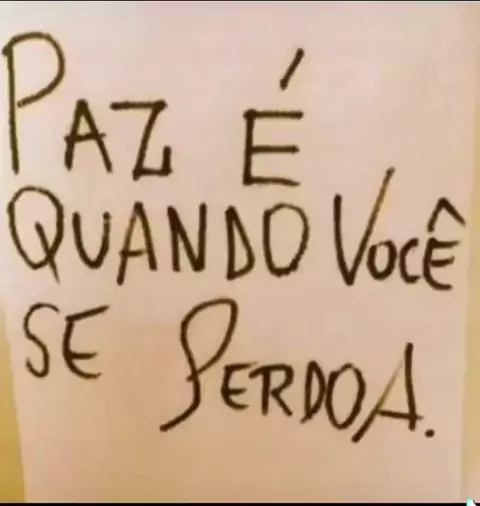 PAZ É
QUANDO VOCÊ
SE PERDOA.